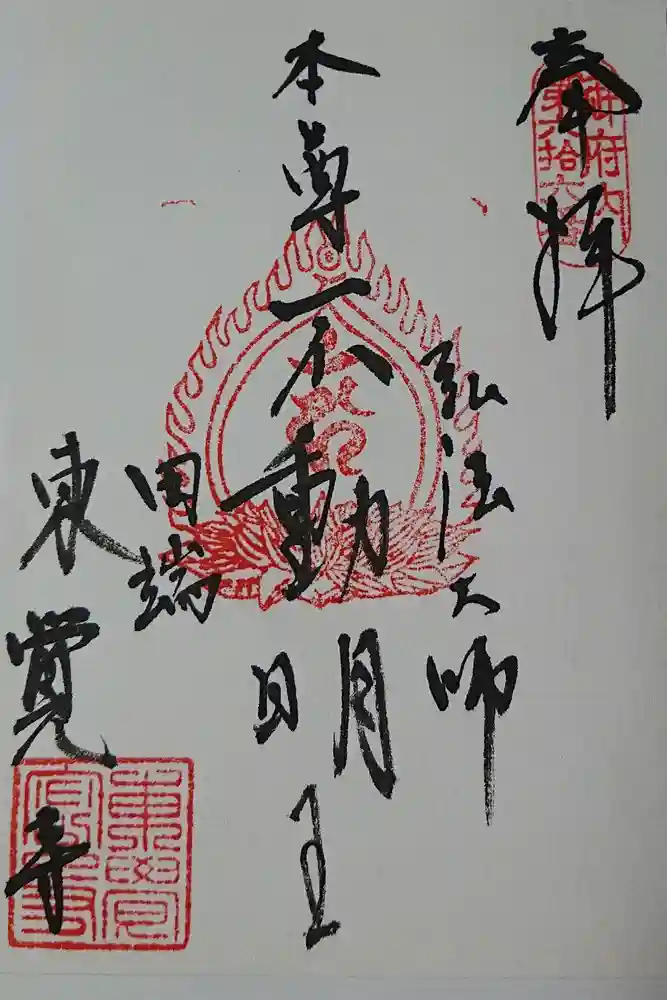 奉拝
御府内
第六拾六番
弘法大師
本尊不動明王
田端
東覺寺
東覺
寫寺